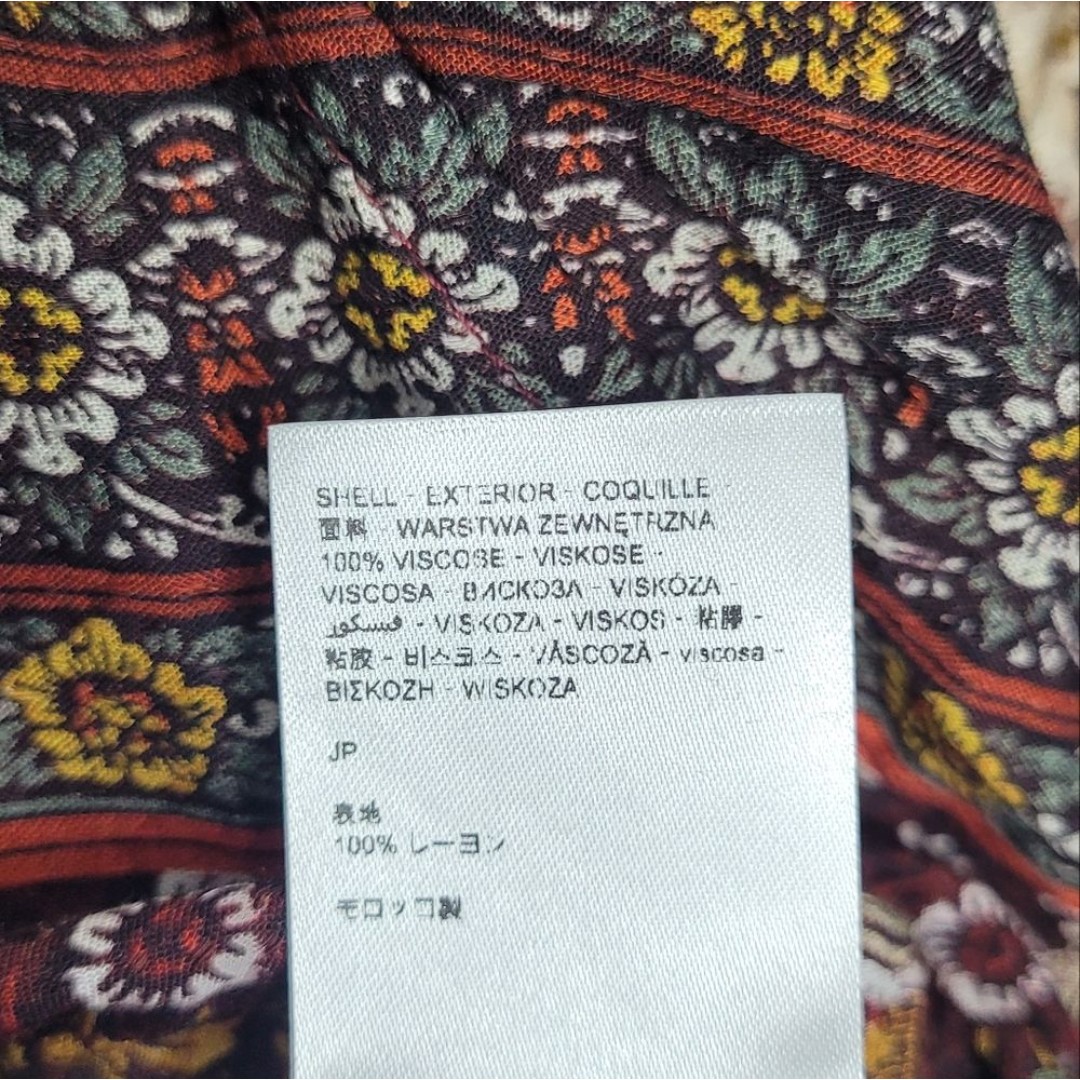 SHELL - EXTERIOR - COQUILLE -
面料 - WARSTWA ZEWNĘTRZNA
100% VISCOSE - VISKOSE -
VISCOSA - ВИСКОЗА - VISKÓZA -
فيسكوز - VISKOZA - VISKOS - 粘膠 -
粘胶 - 비스코스 - VÁSCOZÀ - viscosa -
ΒΙΣΚΟΖΗ - WISKOZA
JP
表地
100% レーヨン
モロッコ製